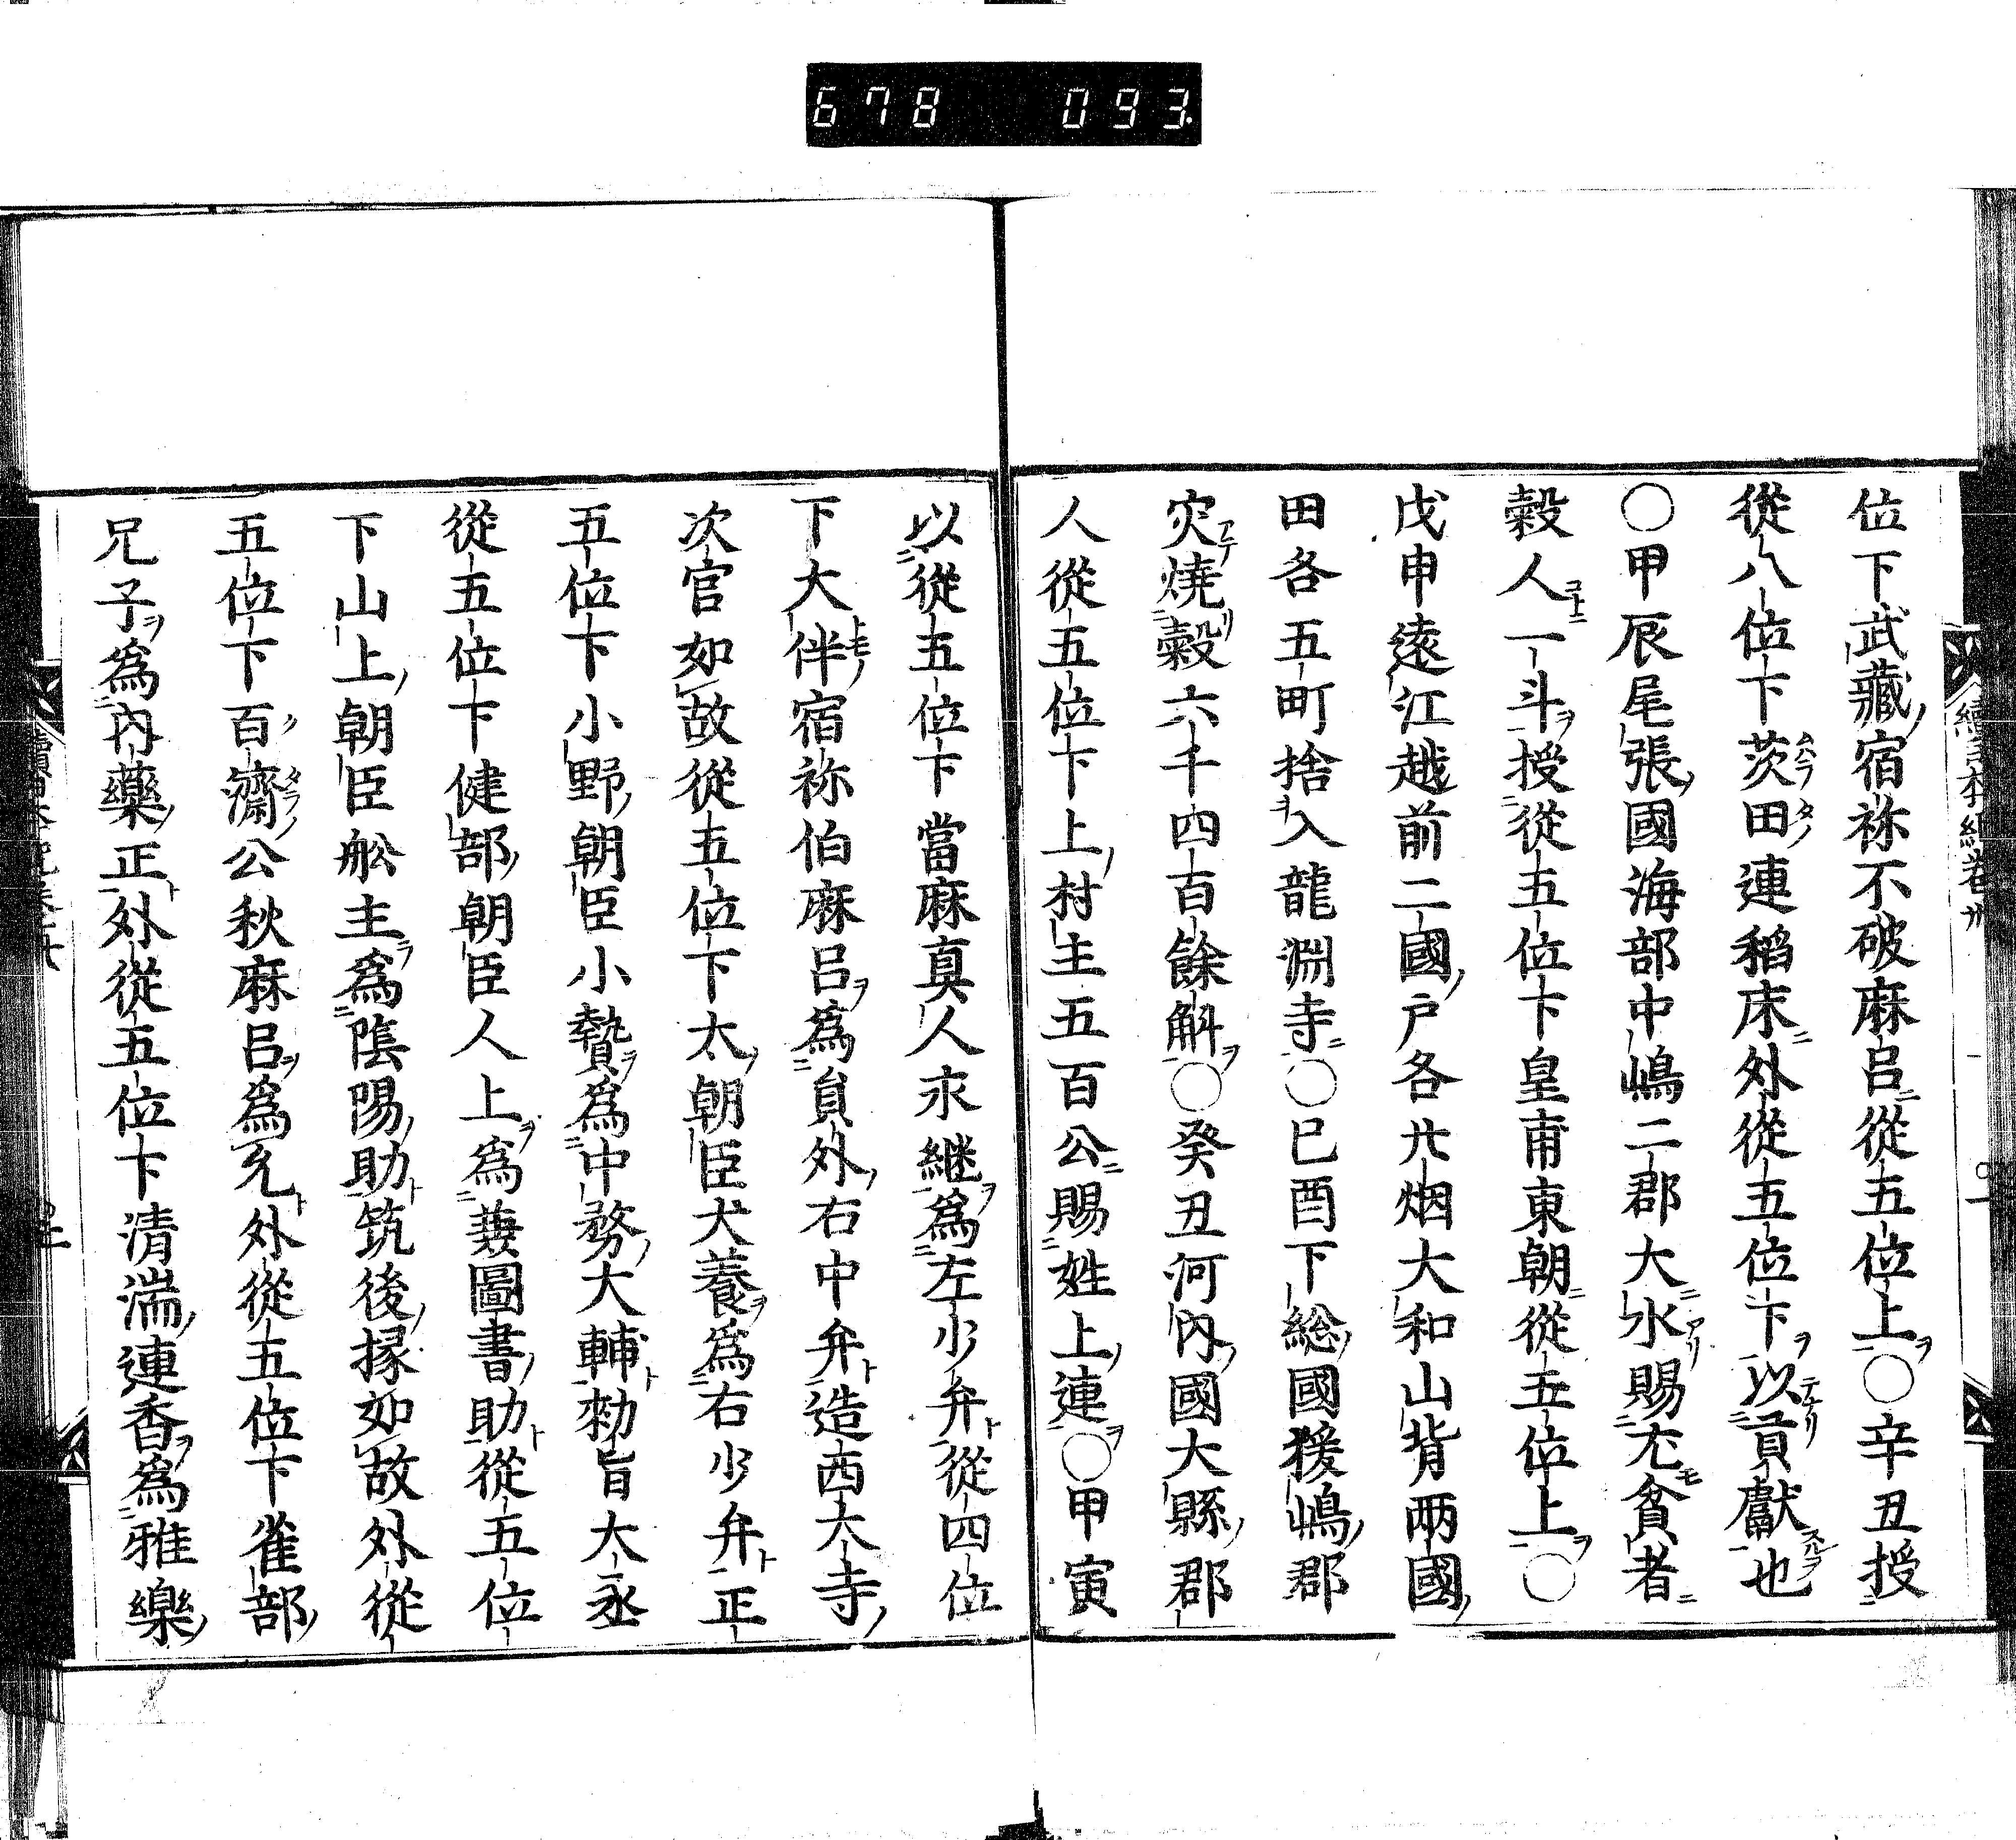 678 093
位下武藏宿祢不破麻呂從五位上○辛丑授
從八位下茨田連稻床外從五位下以貢獻也
○甲辰尾張國海部中嶋二郡大水賜尤貧者
穀人一斗授從五位下皇甫東朝從五位上○
戊申遠江越前二國戸各廾烟大和山背兩國
田各五町捨入龍淵寺○已酉下総國猨嶋郡
灾燒穀六千四百餘斛○癸丑河內國大縣郡
人從五位下上村主五百公賜姓上連○甲寅
以從五位下當麻真人永継爲左少弁從四位
下大伴宿祢伯麻呂爲貟外右中弁造西大寺
次官如故從五位下太朝臣犬養爲右少弁正
五位下小野朝臣小贄爲中務大輔勑旨大丞
從五位下健部朝臣人上爲兼圖書助從五位
下山上朝臣舩主爲隂陽助筑後掾如故外從
五位下百濟公秋麻呂爲允外從五位下雀部
兄子爲內藥正外從五位下清湍連香爲雅樂